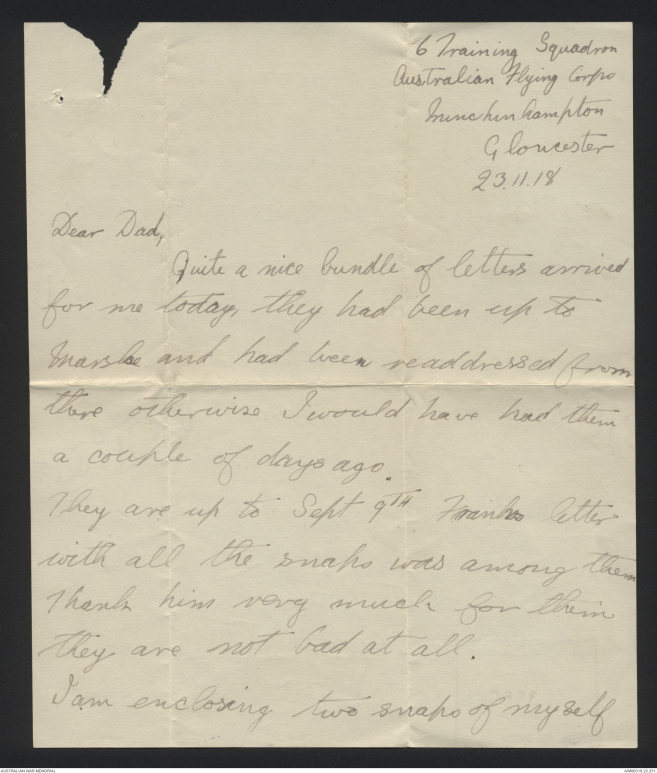 6 Training Squadron
Australian Flying Corps
Minchinhampton
Gloucester
23.11.18
Dear Dad,
Quite a nice bundle of letters arrived
for me today, they had been up to
Marske and had been readdressed from
there otherwise I would have had them
a couple of days ago.
They are up to Sept 9TH Franks letter
with all the snaps was among them
Thank him very much for them
they are not bad at all.
I am enclosing two snaps of myself
AUSTRALIAN WAR MEMORIAL